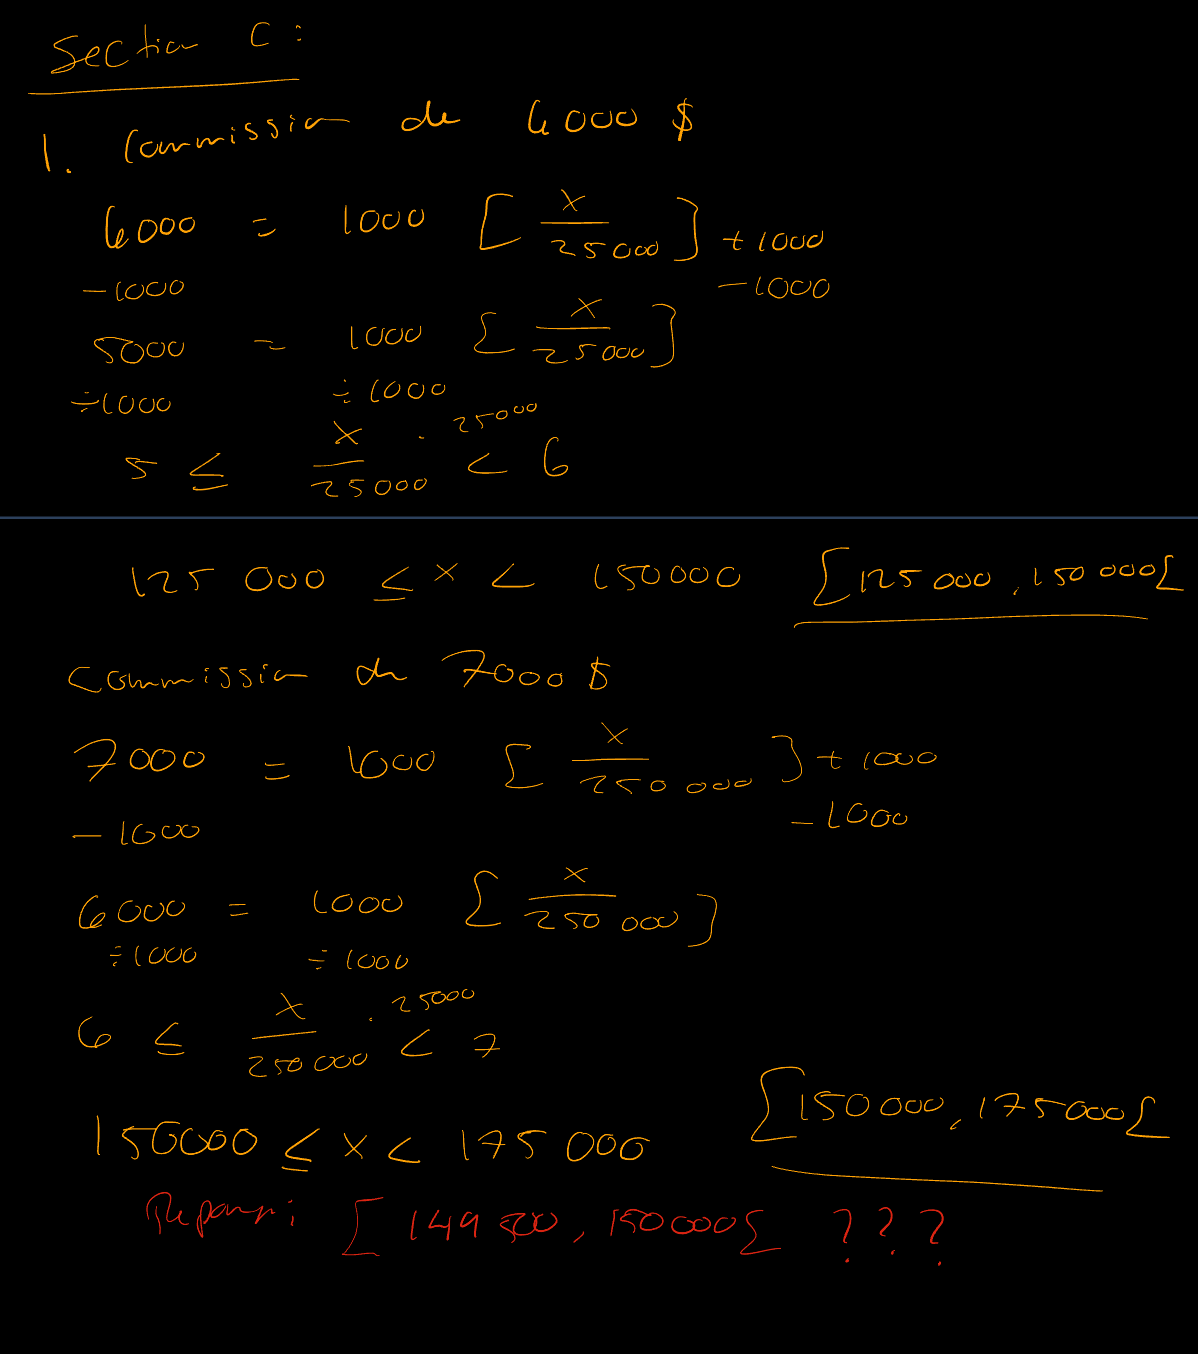 Section C :
1. Commission de 6000 $
6000 = 1000 [ x / 25000 ] + 1000
-1000 -1000
5000 = 1000 [ x / 25000 ]
÷1000 ÷1000
5 ≤ x / 25000 · 25000 < 6
125 000 ≤ x < 150000 [125 000, 150 000[
Commission de 7000 $
7000 = 1000 [ x / 250 000 ] + 1000
-1000 -1000
6000 = 1000 [ x / 250 000 ]
÷1000 ÷1000
6 ≤ x / 250000 · 25000 < 7
150000 ≤ x < 175 000 [150000, 175000[
[149 500, 150000[ ???